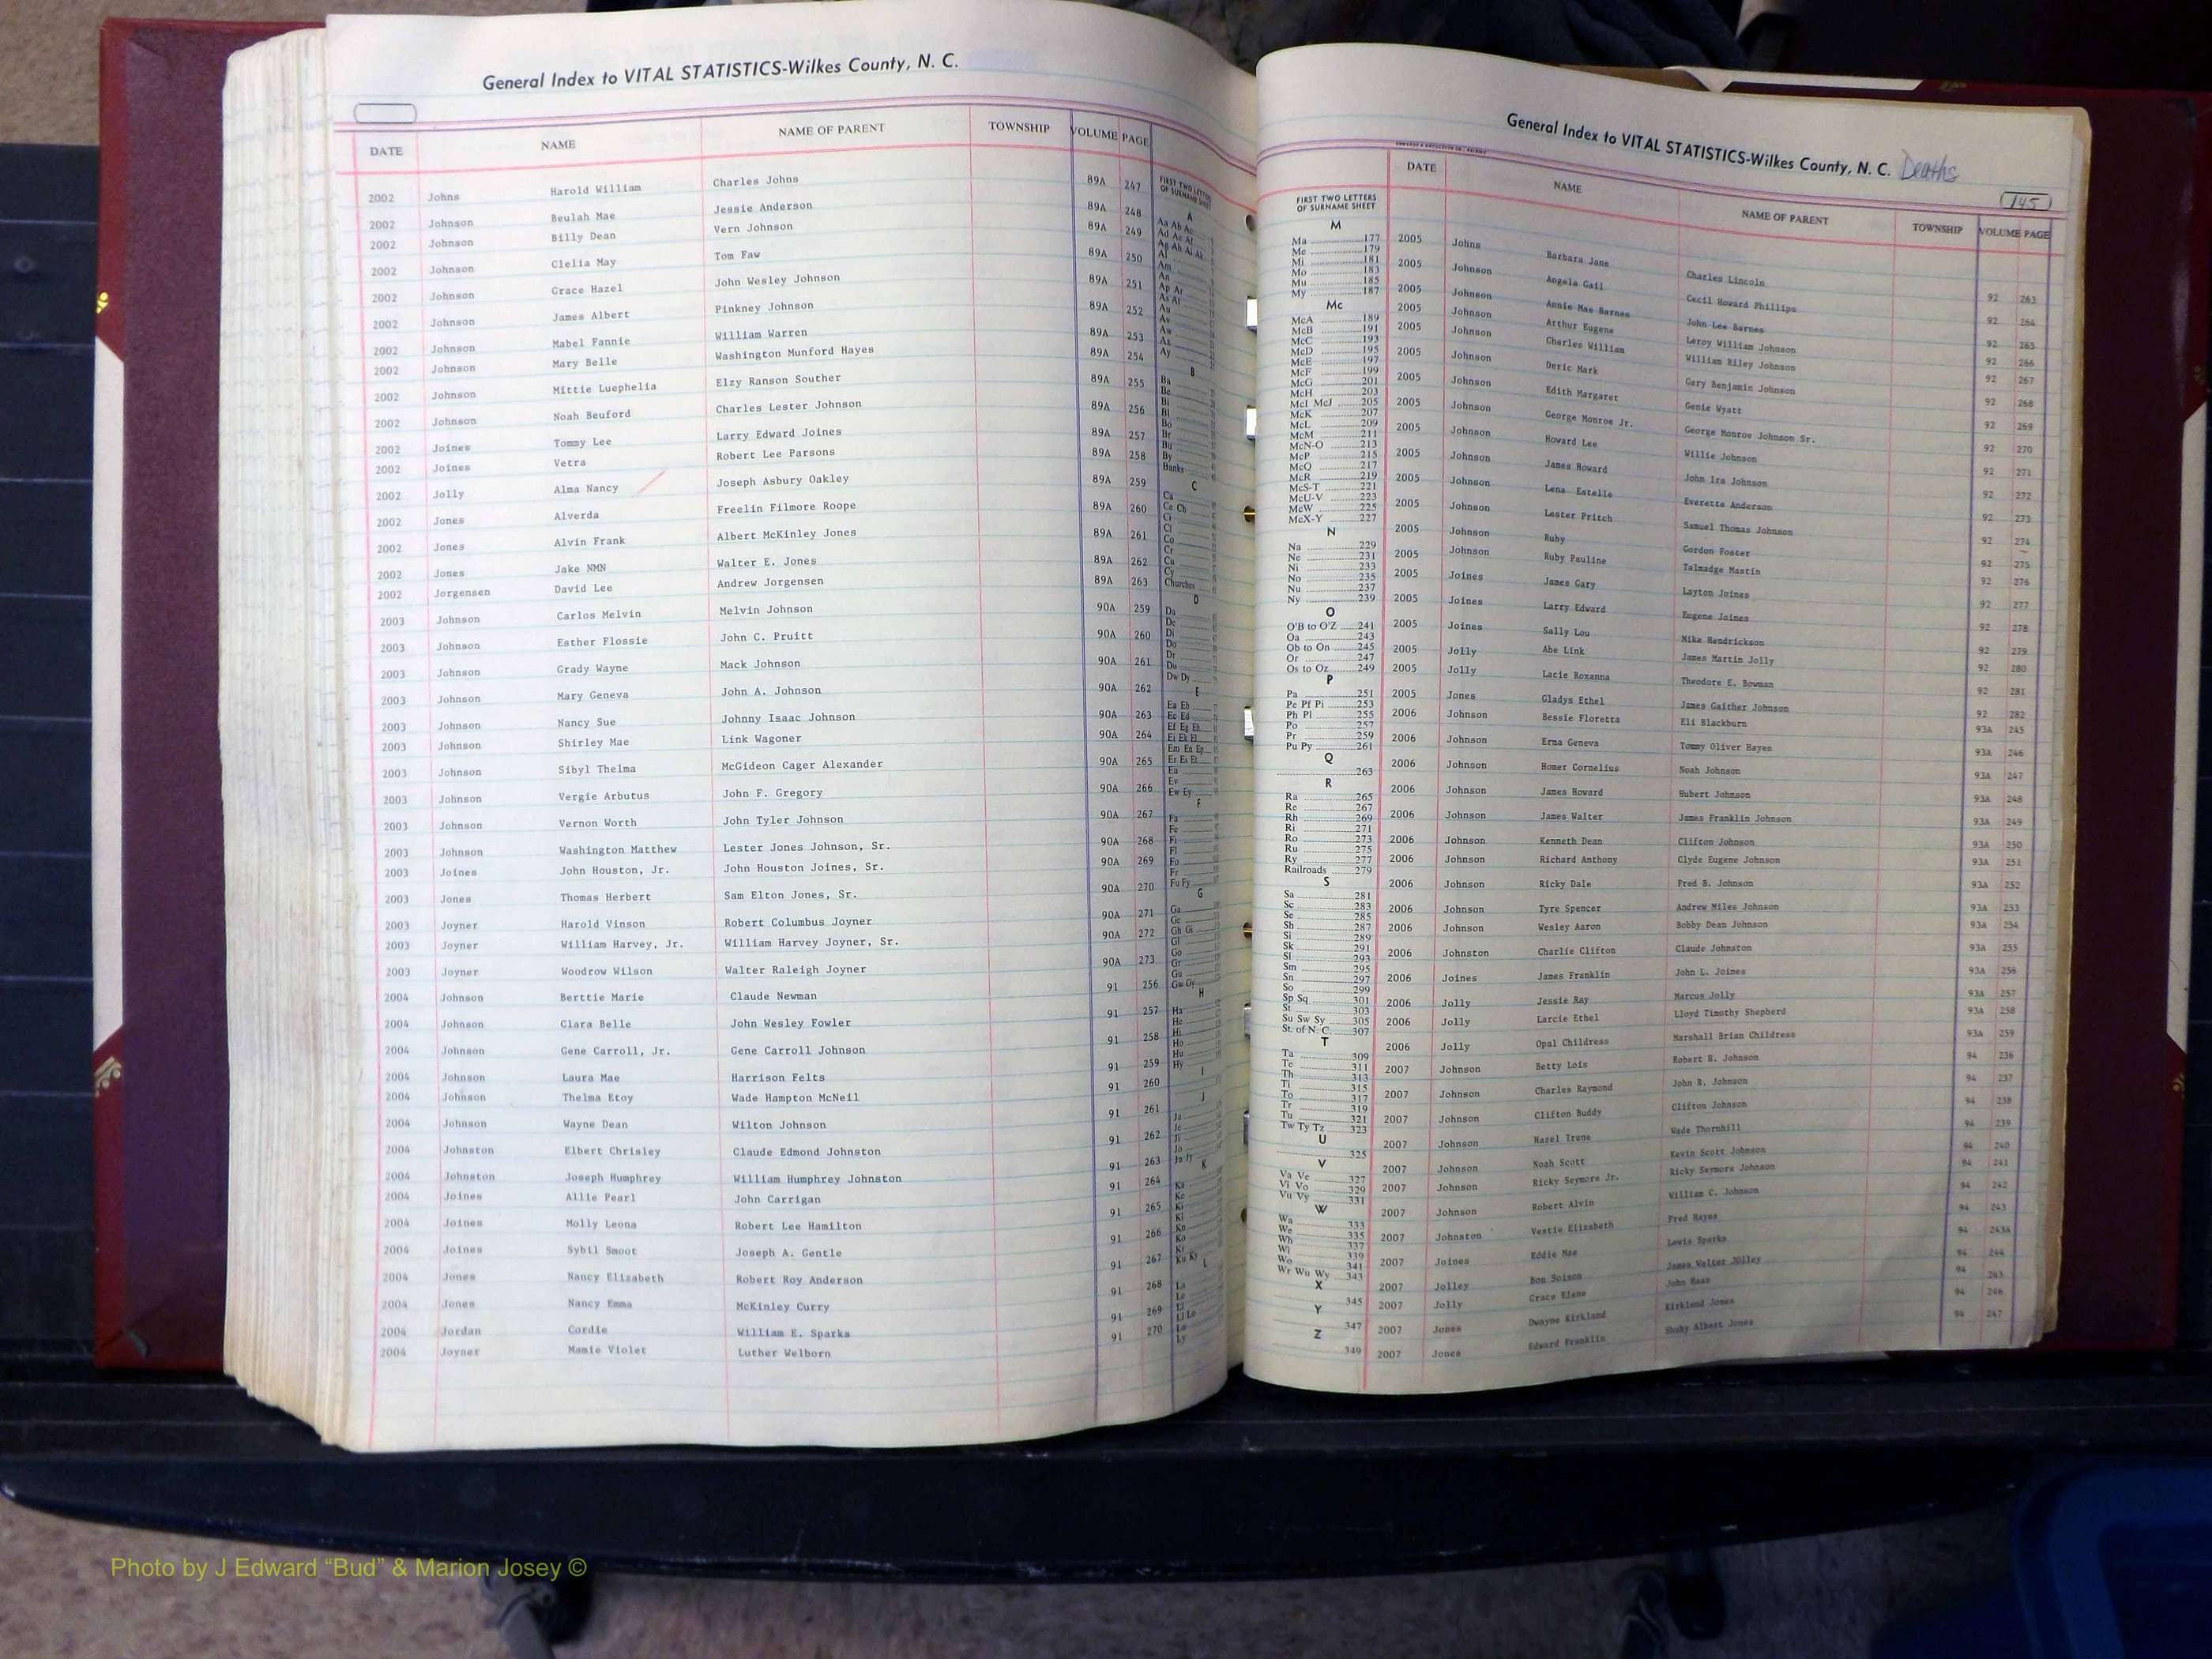 General Index to VITAL STATISTICS-Wilkes County, N. C.
DATE NAME NAME OF PARENT TOWNSHIP VOLUME PAGE
2002 Johns Harold William Charles Johns 89A 247
2002 Johnson Beulah Mae Jessie Anderson 89A 248
2002 Johnson Billy Dean Vern Johnson 89A 249
2002 Johnson Clelia May Tom Faw 89A 250
2002 Johnson Grace Hazel John Wesley Johnson 89A 251
2002 Johnson James Albert Pinkney Johnson 89A 252
2002 Johnson Mabel Fannie William Warren 89A 253
2002 Johnson Mary Belle Washington Munford Hayes 89A 254
2002 Johnson Mittie Luephelia Elzy Ranson Souther 89A 255
2002 Johnson Noah Beuford Charles Lester Johnson 89A 256
2002 Joines Tommy Lee Larry Edward Joines 89A 257
2002 Joines Vetra Robert Lee Parsons 89A 258
2002 Jolly Alma Nancy Joseph Asbury Oakley 89A 259
2002 Jones Alverda Freelin Filmore Roope 89A 260
2002 Jones Alvin Frank Albert McKinley Jones 89A 261
2002 Jones Jake NMN Walter E. Jones 89A 262
2002 Jorgensen David Lee Andrew Jorgensen 89A 263
2003 Johnson Carlos Melvin Melvin Johnson 90A 259
2003 Johnson Esther Flossie John C. Pruitt 90A 260
2003 Johnson Grady Wayne Mack Johnson 90A 261
2003 Johnson Mary Geneva John A. Johnson 90A 262
2003 Johnson Nancy Sue Johnny Isaac Johnson 90A 263
2003 Johnson Shirley Mae Link Wagoner 90A 264
2003 Johnson Sibyl Thelma McGideon Cager Alexander 90A 265
2003 Johnson Vergie Arbutus John F. Gregory 90A 266
2003 Johnson Vernon Worth John Tyler Johnson 90A 267
2003 Johnson Washington Matthew Lester Jones Johnson, Sr. 90A 268
2003 Joines John Houston, Jr. John Houston Joines, Sr. 90A 269
2003 Jones Thomas Herbert Sam Elton Jones, Sr. 90A 270
2003 Joyner Harold Vinson Robert Columbus Joyner 90A 271
2003 Joyner William Harvey, Jr. William Harvey Joyner, Sr. 90A 272
2003 Joyner Woodrow Wilson Walter Raleigh Joyner 90A 273
2004 Johnson Berttie Marie Claude Newman 91 256
2004 Johnson Clara Belle John Wesley Fowler 91 257
2004 Johnson Gene Carroll, Jr. Gene Carroll Johnson 91 258
2004 Johnson Laura Mae Harrison Felts 91 259
2004 Johnson Thelma Etoy Wade Hampton McNeil 91 260
2004 Johnson Wayne Dean Wilton Johnson 91 261
2004 Johnston Elbert Chrisley Claude Edmond Johnston 91 262
2004 Johnston Joseph Humphrey William Humphrey Johnston 91 263
2004 Joines Allie Pearl John Carrigan 91 264
2004 Joines Molly Leona Robert Lee Hamilton 91 265
2004 Joines Sybil Smoot Joseph A. Gentle 91 266
2004 Jones Nancy Elizabeth Robert Roy Anderson 91 267
2004 Jones Nancy Emma McKinley Curry 91 268
2004 Jordan Cordie William E. Sparks 91 269
2004 Joyner Mamie Violet Luther Welborn 91 270
FIRST TWO LETTERS OF SURNAME SHEET
A
Aa Ab Ac
Ad Ae Af
Ag Ah Ai Ak
Al
Am
An
Ap Ar
As At
Au
Av
Aw
Ax
Ay
B
Ba
Be
Bi
Bl
Bo
Br
Bu
By
Banks
C
Ca
Ce Ch
Ci
Cl
Co
Cr
Cu
Cy
Churches
D
Da
De
Di
Do
Dr
Du
Dw Dy
E
Ea Eb
Ec Ed
Ef Eg Eh
Ei Ek El
Em En Ep
Er Es Et
Eu
Ev
Ew Ey
F
Fa
Fe
Fi
Fl
Fo
Fr
Fu Fy
G
Ga
Ge
Gh Gi
Gl
Go
Gr
Gu
Gw Gy
H
Ha
He
Hi
Ho
Hu
Hy
I
J
Ja
Je
Ji
Jo
Ju Jy
K
Ka
Ke
Ki
Kl
Kn
Ko
Kr
Ku Ky
L
La
Le
Li
Ll Lo
Lu
Ly
General Index to VITAL STATISTICS-Wilkes County, N. C. Deaths
145
DATE NAME NAME OF PARENT TOWNSHIP VOLUME PAGE
FIRST TWO LETTERS
OF SURNAME SHEET
M
Ma 177
Me 179
Mi 181
Mo 183
Mu 185
My 187
Mc
McA 189
McB 191
McC 193
McD 195
McE 197
McF 199
McG 201
McH 203
McI McJ 205
McK 207
McL 209
McM 211
McN-O 213
McP 215
McQ 217
McR 219
McS-T 221
McU-V 223
McW 225
McX-Y 227
N
Na 229
Ne 231
Ni 233
No 235
Nu 237
Ny 239
O
O'B to O'Z 241
Oa 243
Ob to On 245
Or 247
Os to Oz 249
P
Pa 251
Pe Pf Pi 253
Ph Pl 255
Po 257
Pr 259
Pu Py 261
Q
263
R
Ra 265
Re 267
Rh 269
Ri 271
Ro 273
Ru 275
Ry 277
Railroads 279
S
Sa 281
Sc 283
Se 285
Sh 287
Si 289
Sk 291
Sl 293
Sm 295
Sn 297
So 299
Sp Sq 301
St 303
Su Sw Sy 305
St. of N. C. 307
T
Ta 309
Te 311
Th 313
Ti 315
To 317
Tr 319
Tu 321
Tw Ty Tz 323
U
325
V
Va Ve 327
Vi Vo 329
Vu Vy 331
W
Wa 333
We 335
Wh 337
Wi 339
Wo 341
Wr Wu Wy 343
X
345
Y
347
Z
349
2005 Johns Barbara Jane Charles Lincoln 92 263
2005 Johnson Angela Gail Cecil Howard Phillips 92 264
2005 Johnson Annie Mae Barnes John Lee Barnes 92 265
2005 Johnson Arthur Eugene Leroy William Johnson 92 266
2005 Johnson Charles William William Riley Johnson 92 267
2005 Johnson Deric Mark Gary Benjamin Johnson 92 268
2005 Johnson Edith Margaret Genie Wyatt 92 269
2005 Johnson George Monroe Jr. George Monroe Johnson Sr. 92 270
2005 Johnson Howard Lee Willie Johnson 92 271
2005 Johnson James Howard John Ira Johnson 92 272
2005 Johnson Lena Estelle Everette Anderson 92 273
2005 Johnson Lester Pritch Samuel Thomas Johnson 92 274
2005 Johnson Ruby Gordon Foster 92 275
2005 Johnson Ruby Pauline Talmadge Mastin 92 276
2005 Joines James Gary Layton Joines 92 277
2005 Joines Larry Edward Eugene Joines 92 278
2005 Joines Sally Lou Mike Hendrickson 92 279
2005 Jolly Abe Link James Martin Jolly 92 280
2005 Jolly Lacie Roxanna Theodore E. Bowman 92 281
2005 Jones Gladys Ethel James Gaither Johnson 92 282
2006 Johnson Bessie Floretta Eli Blackburn 93A 245
2006 Johnson Erma Geneva Tommy Oliver Hayes 93A 246
2006 Johnson Homer Cornelius Noah Johnson 93A 247
2006 Johnson James Howard Hubert Johnson 93A 248
2006 Johnson James Walter James Franklin Johnson 93A 249
2006 Johnson Kenneth Dean Clifton Johnson 93A 250
2006 Johnson Richard Anthony Clyde Eugene Johnson 93A 251
2006 Johnson Ricky Dale Fred B. Johnson 93A 252
2006 Johnson Tyre Spencer Andrew Miles Johnson 93A 253
2006 Johnson Wesley Aaron Bobby Dean Johnson 93A 254
2006 Johnston Charlie Clifton Claude Johnston 93A 255
2006 Joines James Franklin John L. Joines 93A 256
2006 Jolly Jessie Ray Marcus Jolly 93A 257
2006 Jolly Larcie Ethel Lloyd Timothy Shepherd 93A 258
2006 Jolly Opal Childress Marshall Brian Childress 93A 259
2007 Johnson Betty Lois Robert H. Johnson 94 236
2007 Johnson Charles Raymond John R. Johnson 94 237
2007 Johnson Clifton Buddy Clifton Johnson 94 238
2007 Johnson Hazel Irene Wade Thornhill 94 239
2007 Johnson Noah Scott Kevin Scott Johnson 94 240
2007 Johnson Ricky Seymore Jr. Ricky Seymore Johnson 94 241
2007 Johnson Robert Alvin William C. Johnson 94 242
2007 Johnston Vestie Elizabeth Fred Hayes 94 243
2007 Joines Eddie Mae Lewis Sparks 94 243A
2007 Jolley Bon Soison James Walter Jolley 94 244
2007 Jolly Grace Elene John Haas 94 245
2007 Jones Dwayne Kirkland Kirkland Jones 94 246
2007 Jones Edward Franklin Shuby Albert Jones 94 247
Photo by J Edward “Bud” & Marion Josey ©